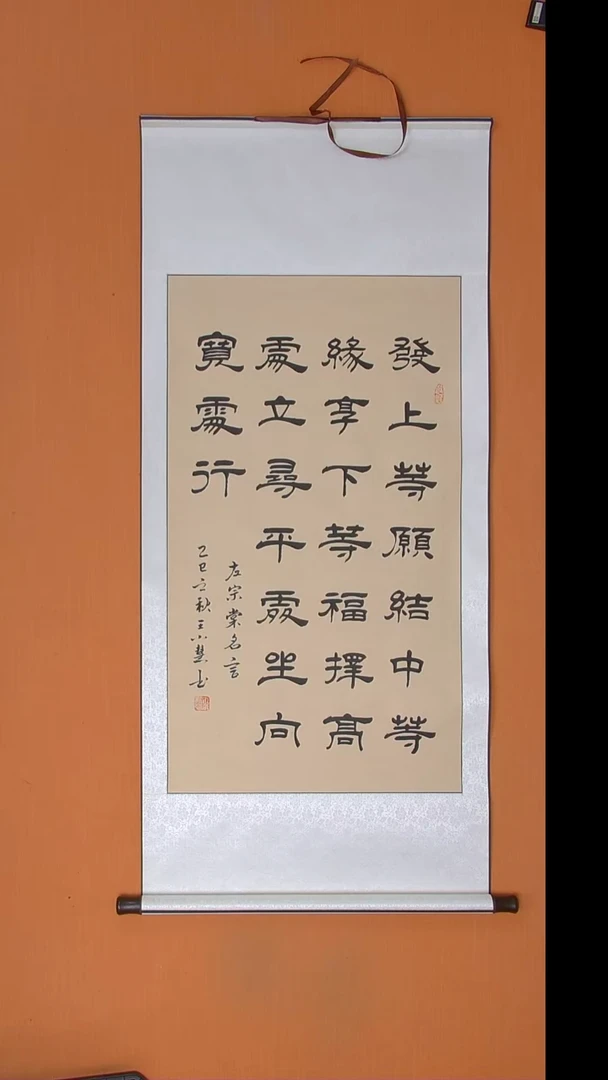 發上等願結中等
緣享下等福擇高
處立尋平處坐向
寬處行
左宗棠名言
乙巳之秋王小慧书